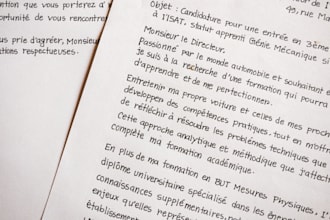 ntion que vous porterez à
ortunité de vous rencontre
us prie d'agréer, Monsieur
ations respectueuses.
49, rue Ma
Objet : Candidature pour une entrée en 3ème
à l'ISAT, statut apprenti Génie Mécanique si
Monsieur le Directeur,
Passionné par le monde automobile et souhaitant e
Je suis à la recherche d'une formation qui pourra
d'apprendre et de me perfectionner.
Entretenir ma propre voiture et celles de mes proc
développer des compétences pratiques, tout en m'off
de réfléchir à résoudre les problèmes techniques que
Cette approche analytique et méthodique que j'affect
complète ma formation académique.
En plus de ma formation en BUT Mesures Physiques, l'
diplôme universitaire spécialisé dans les énerg
connaissances supplémentaires
enjeux qu'elles représe
établissement